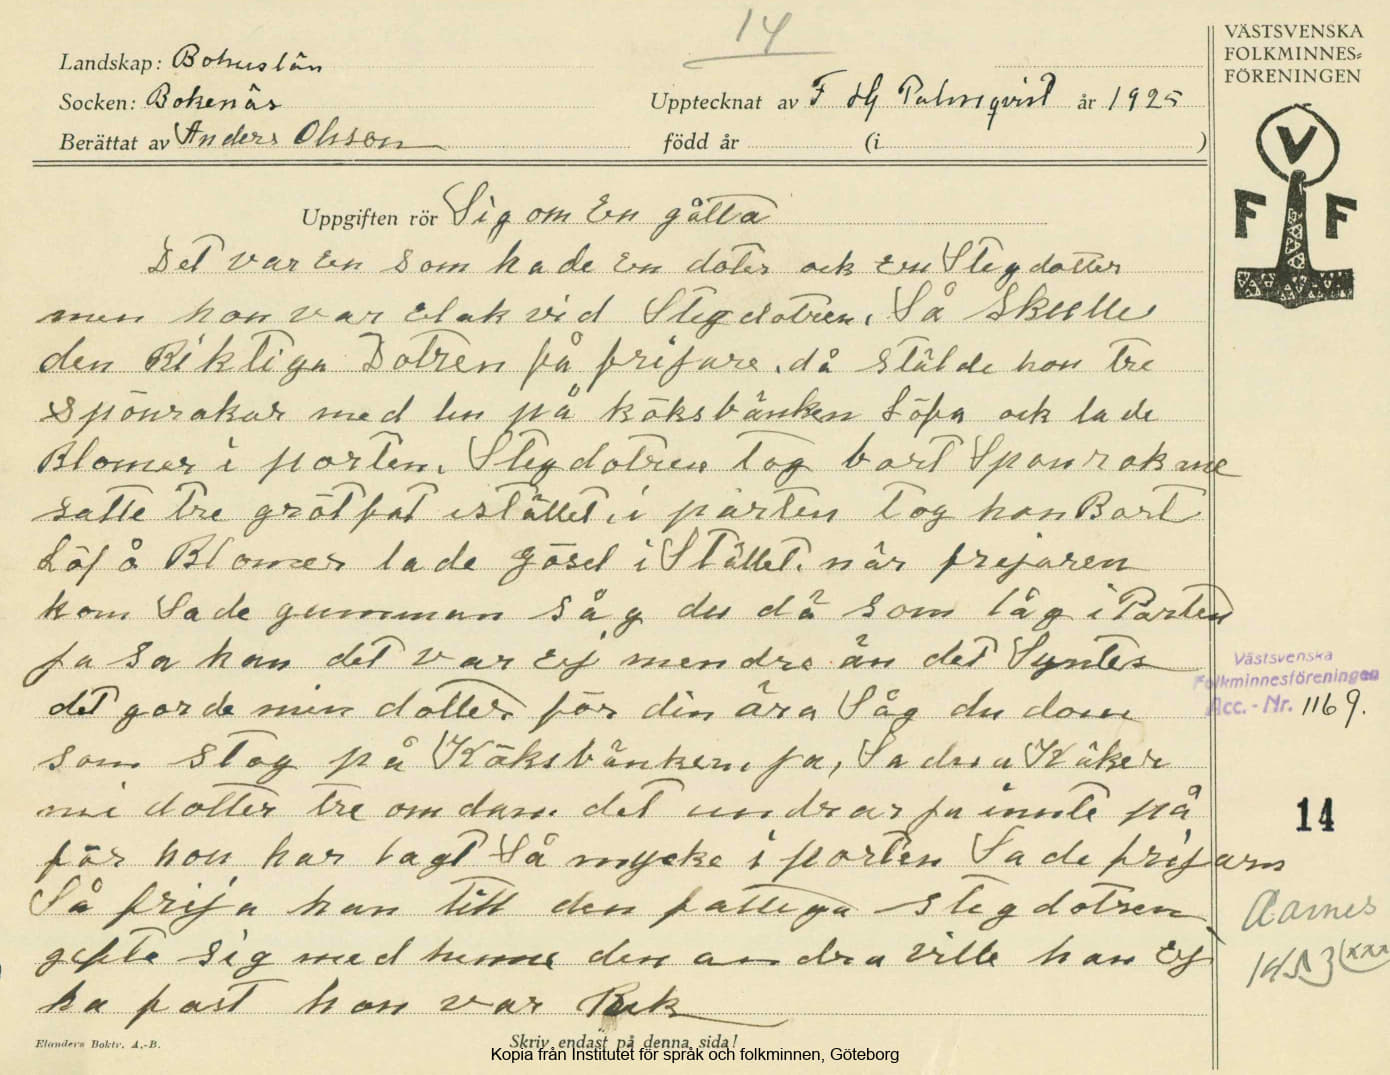 14
VÄSTSVENSKA
FOLKMINNES=
FÖRENINGEN
Landskap: Bohuslän
Socken: Bokenäs
Upptecknat av F Hj Palmqvist år 1925
Berättat av Anders Olsson född år (i )
V
F F
Uppgiften rör Sig om En gåtta
Det var En som hade En doter ock En Stegdotter
men hon var elak vid Stegdotren. Så Skulle
den Riktiga Dotren få frijare. då stälde hon tre
spönrakar med lin på köksbänken Löfa ock lade
Blomer i porten. Stegdotren tog bort Sponrokrne
satte tre grötfat istället. i pårten tog hon Bort
Löf å Blomer lade gösel i Stället. när frejaren
kom Sade gumman såg du då som låg i Parten
ja sa han det var Ej mendre än det Syntes
det gorde min dotter för din ära Såg du dom
som stog på Köksbänken, ja, Sa du Kåker
mi dotter tre om dan. det undrar ja innte på
för hon har lagt Så mycke i porten Sade frijarn
Så frija han till den fattiga stegdotren
gifte sig med henne den andra ville han Ej
ha fast hon var Rik
Västsvenska
Folkminnesföreningen
Acc.-Nr. 1169.
14
Aarnes
Elanders Boktr. A.-B.
Skriv endast på denna sida!
Kopia från Institutet för språk och folkminnen, Göteborg